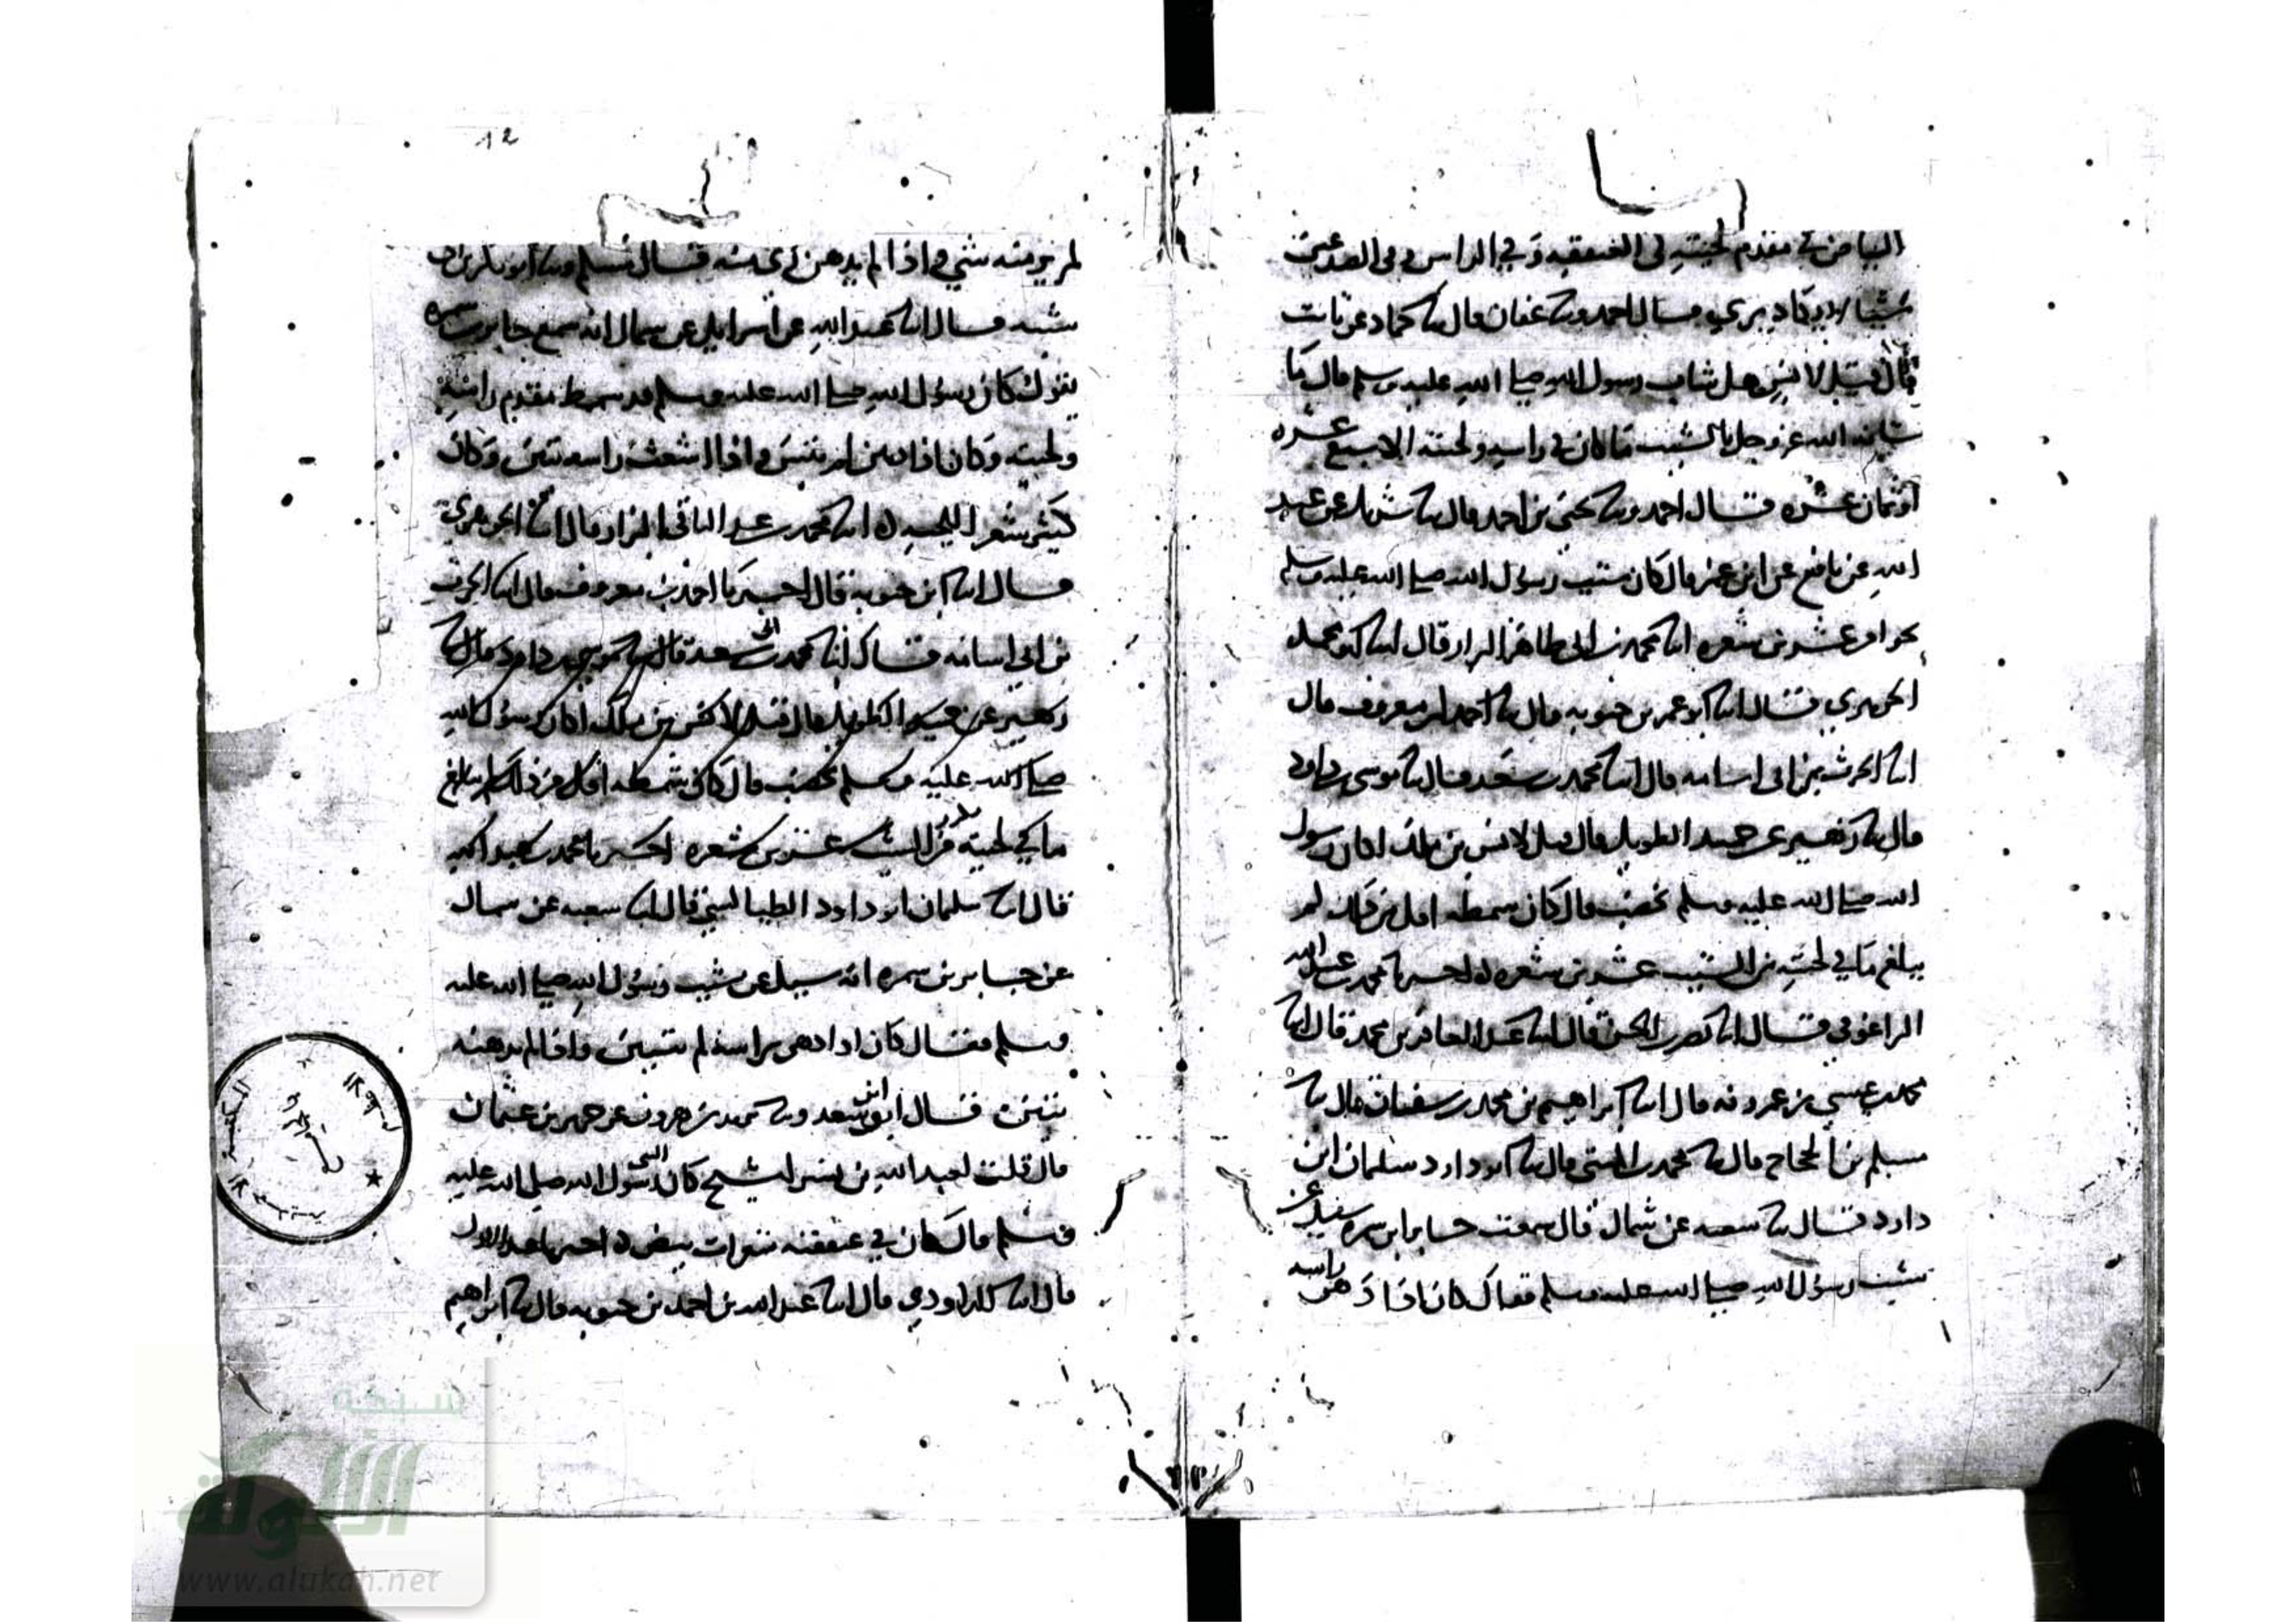 البياض في مقدم لحيته في العنفقه وفي الراس وفي الصدغين
شيئا لا يكاد يرى قال احمد وسا عفان قال سا حماد عن ثابت
قال قيل لانس هل شاب رسول الله صلى الله عليه وسلم قال ما
شانه الله عز وجل بالشيب ما كان في راسه ولحيته الا سبع عشره
او ثمان عشره قال احمد وسا يحيى بن احمد قال سا شريك عن عبيد
الله عن نافع عن ابن عمر قال كان شيب رسول الله صلى الله عليه وسلم
نحوا من عشرين شعره انا محمد بن ابي طاهر البزار قال انا ابو محمد
الجوهري قال انا ابو عمر بن حيويه قال سا احمد بن معروف قال
انا الحرث بن ابي اسامه قال انا محمد بن سعد قال سا موسى بن داود
قال سا زهير عن حميد الطويل قال قيل لانس بن ملك اكان رسول
الله صلى الله عليه وسلم يخضب قال كان شمطه اقل من ذلك لم
يبلغ ما في لحيته من الشيب عشرين شعره اخبرنا محمد بن عبد الله
الزاغوني قال انا نصر بن الحسن قال انا عبد الغافر بن محمد قال انا
محمد بن عيسى بن عمرويه قال انا ابراهيم بن محمد بن سفيان قال سا
مسلم بن الحجاج قال سا محمد بن المثنى قال سا ابو داود سلمان ابن
داود قال سا سعبه عن سماك قال سمعت جابر ابن سمره سئل عن
شيب رسول الله صلى الله عليه وسلم فقال كان اذا دهن راسه
12
لم ير منه شي واذا لم يدهن رئ منه قال مسلم وسا ابو بكر بن ابي
شيبه قال انا عبيد الله عن اسرايل عن سماك انه سمع جابر بن سمره
يقول كان رسول الله صلى الله عليه وسلم قد شمط مقدم راسه
ولحيته وكان اذا ادهن لم يتبين واذا شعث راسه تبين وكان
كثير شعر اللحيه انا محمد بن عبد الباقي البزار قال انا الجوهري
قال انا ابن حيويه قال اخبرنا احمد بن معروف قال انا الحرث
بن ابي اسامه قال انا محمد بن سعد قال سا موسى بن داود قال سا
زهير عن حميد الطويل قال قيل لانس بن ملك اكان رسول الله
صلى الله عليه وسلم يخضب قال كان شمطه اقل من ذلك لم يبلغ
ما في لحيته من الشيب عشرين شعره اخبرنا محمد بن عبد الله
قال انا سلمان ابو داود الطيالسي قال انا سعبه عن سماك
عن جابر بن سمره انه سيل عن شيب رسول الله صلى الله عليه
وسلم فقال كان اذا دهن راسه لم يتبين واذا لم يدهنه
تبين قال ابن سعد وسا يزيد بن هرون عن حريز بن عثمان
قال قلت لعبد الله بن بسر الشيخ كان رسول الله صلى الله عليه
وسلم قال كان في عنفقته شعرات بيض اخبرنا عبد الاول
قال انا الداودي قال انا عبد الله بن احمد بن حيويه قال سا ابراهيم
شبكة
الألوكة
www.alukah.net